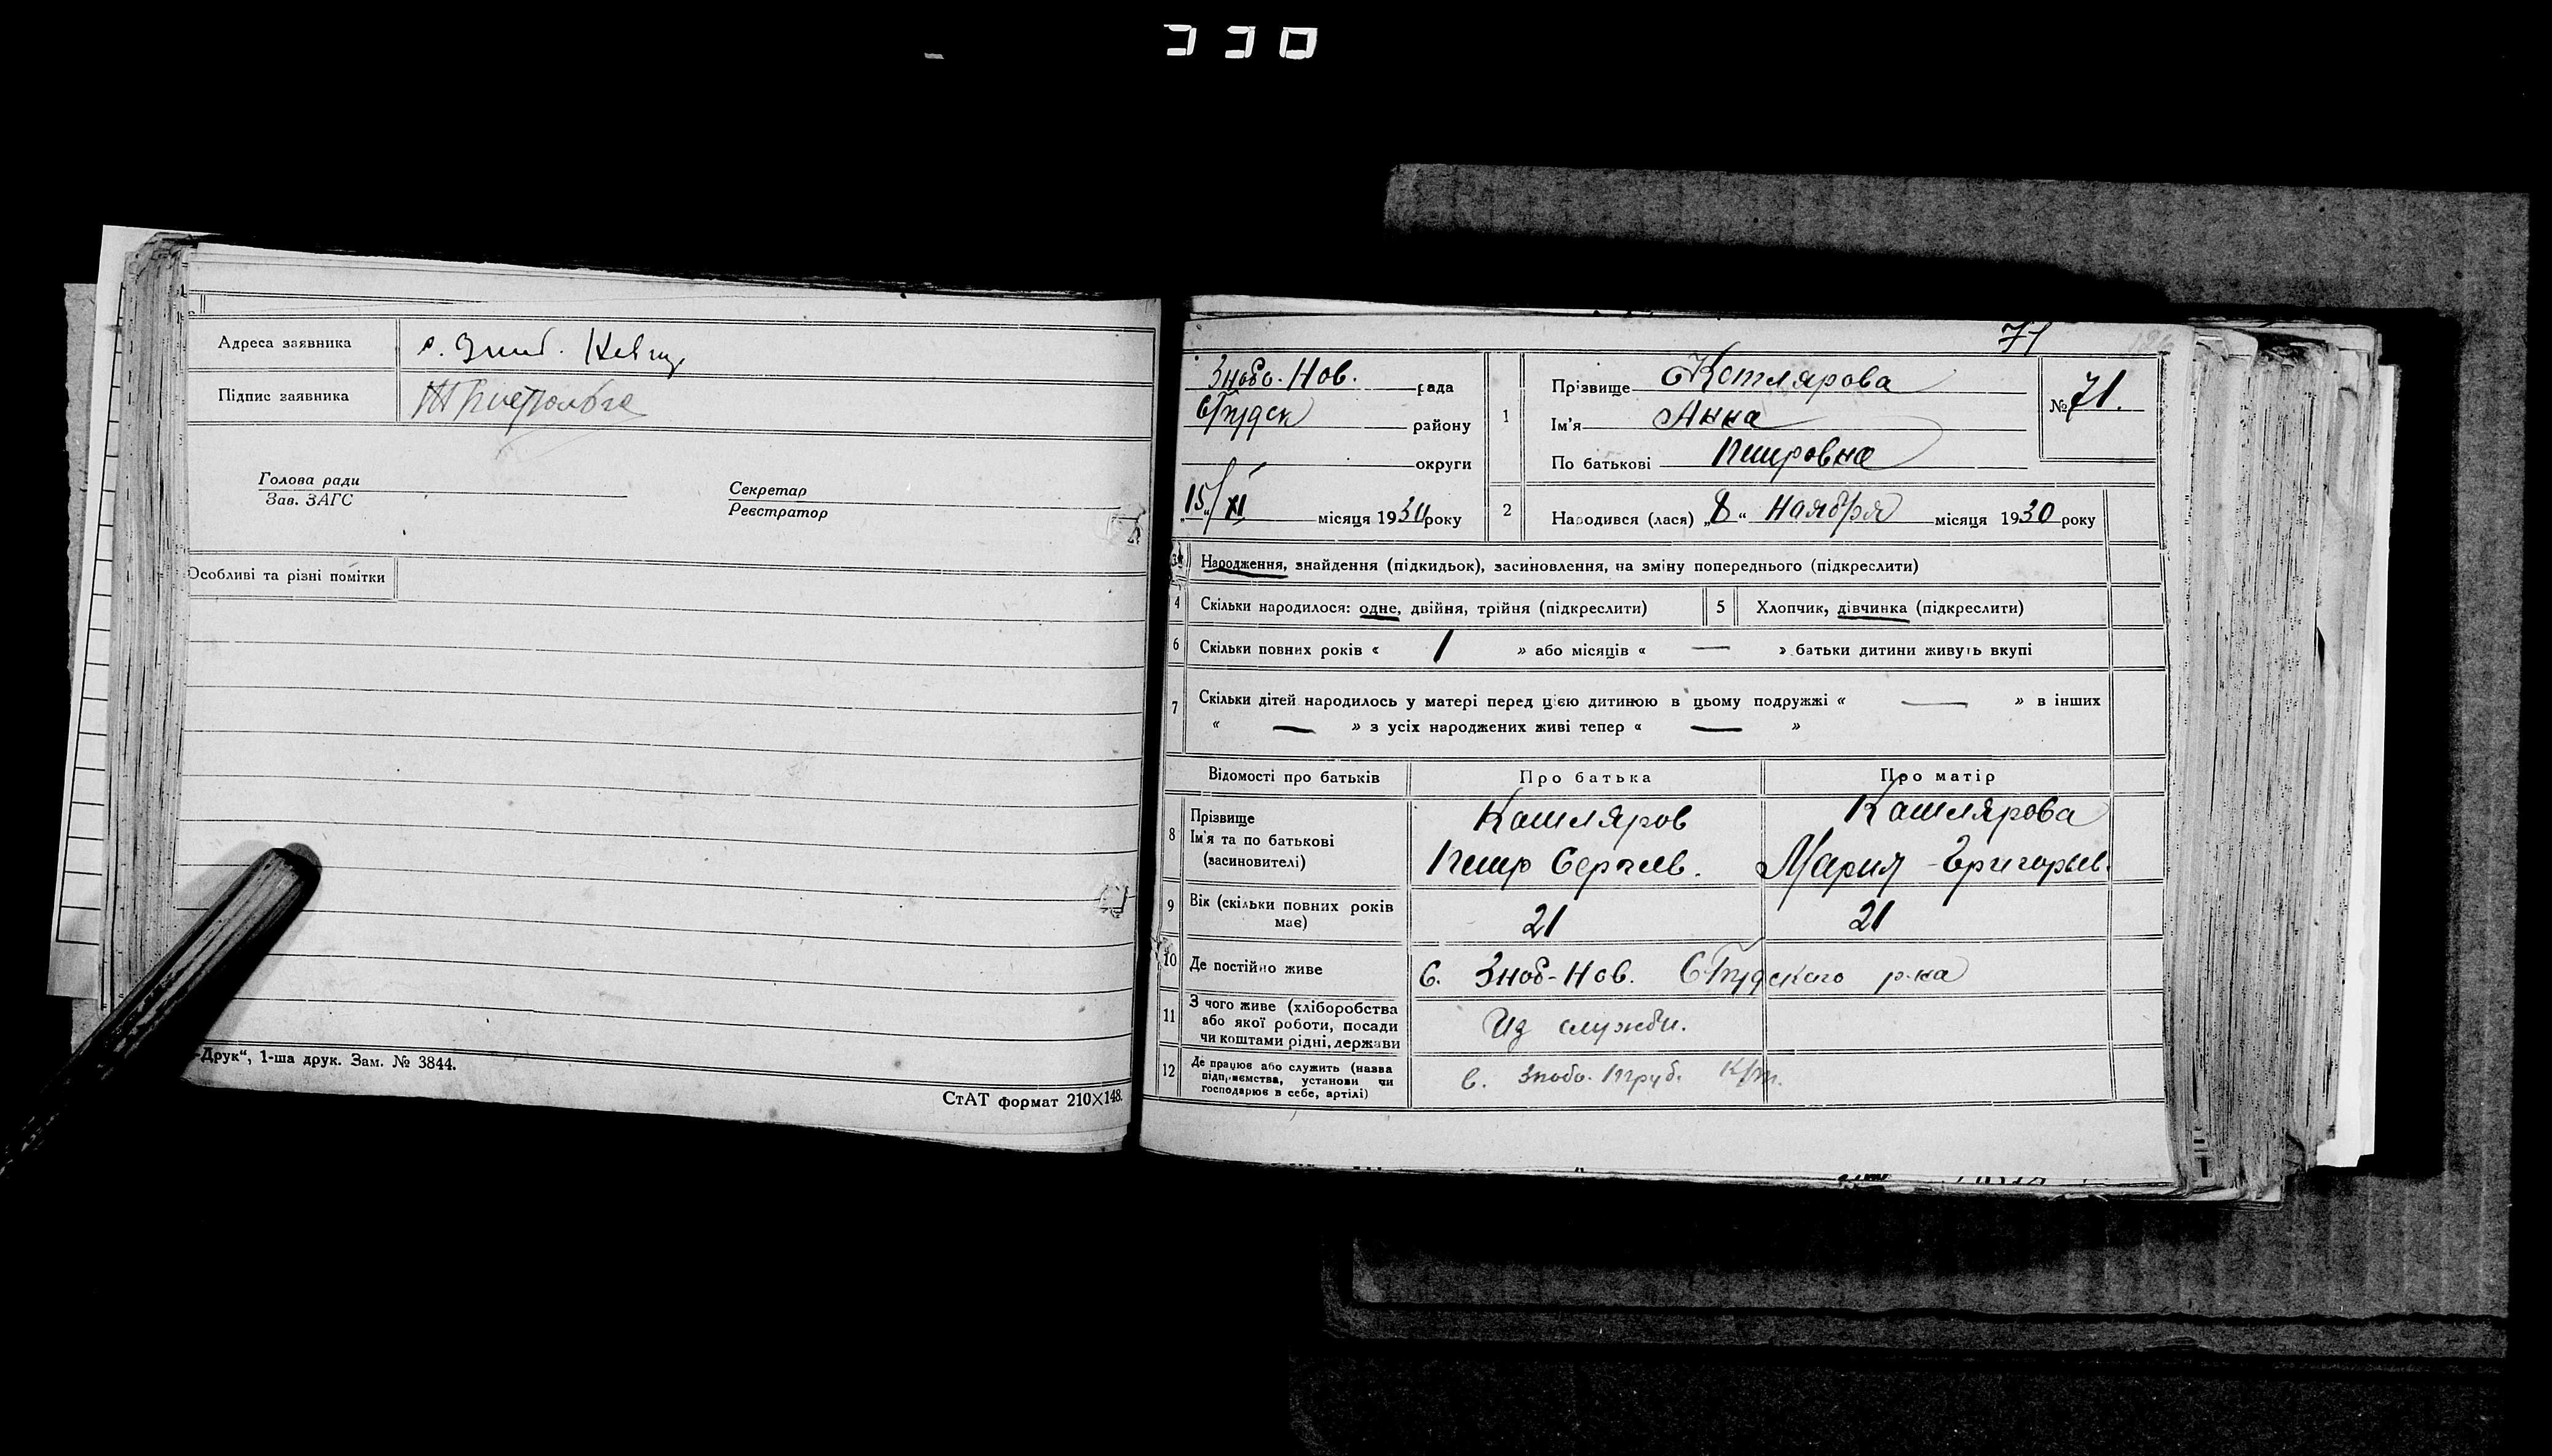 Адреса заявника с. Зноб.
Підпис заявника
Голова ради
Зав. ЗАГС
Секретар
Реєстратор
Особливі та різні помітки
-Друк“, 1-ша друк. Зам. № 3844.
СтАТ формат 210×148.
71
Знобо-Нов. рада
району
округи
15/XI місяця 1930 року
1
Прізвище Котлярова
Ім'я Анна
По батькові Петровна
№ 71.
2 Народився (лася) „8“ Ноября місяця 1930 року
3 Народження, знайдення (підкидьок), засиновлення, на зміну попереднього (підкреслити)
4 Скільки народилося: одне, двійня, трійня (підкреслити) 5 Хлопчик, дівчинка (підкреслити)
6 Скільки повних років « 1 » або місяців « — » батьки дитини живуть вкупі
7 Скільки дітей народилось у матері перед цією дитиною в цьому подружжі « — » в інших
« — » з усіх народжених живі тепер « — »
Відомості про батьків Про батька Про матір
8 Прізвище
Ім'я та по батькові
(засиновителі)
Котляров Котлярова
Петр Сергеев. Мария Григорьев.
9 Вік (скільки повних років
має)
21 21
10 Де постійно живе С. Зноб-Нов. р-на
11 З чого живе (хліборобства
або якої роботи, посади
чи коштами рідні, держави
Из службы.
12 Де працює або служить (назва
підприємства, установи чи
господарює в себе, артілі)
в. Знобо.